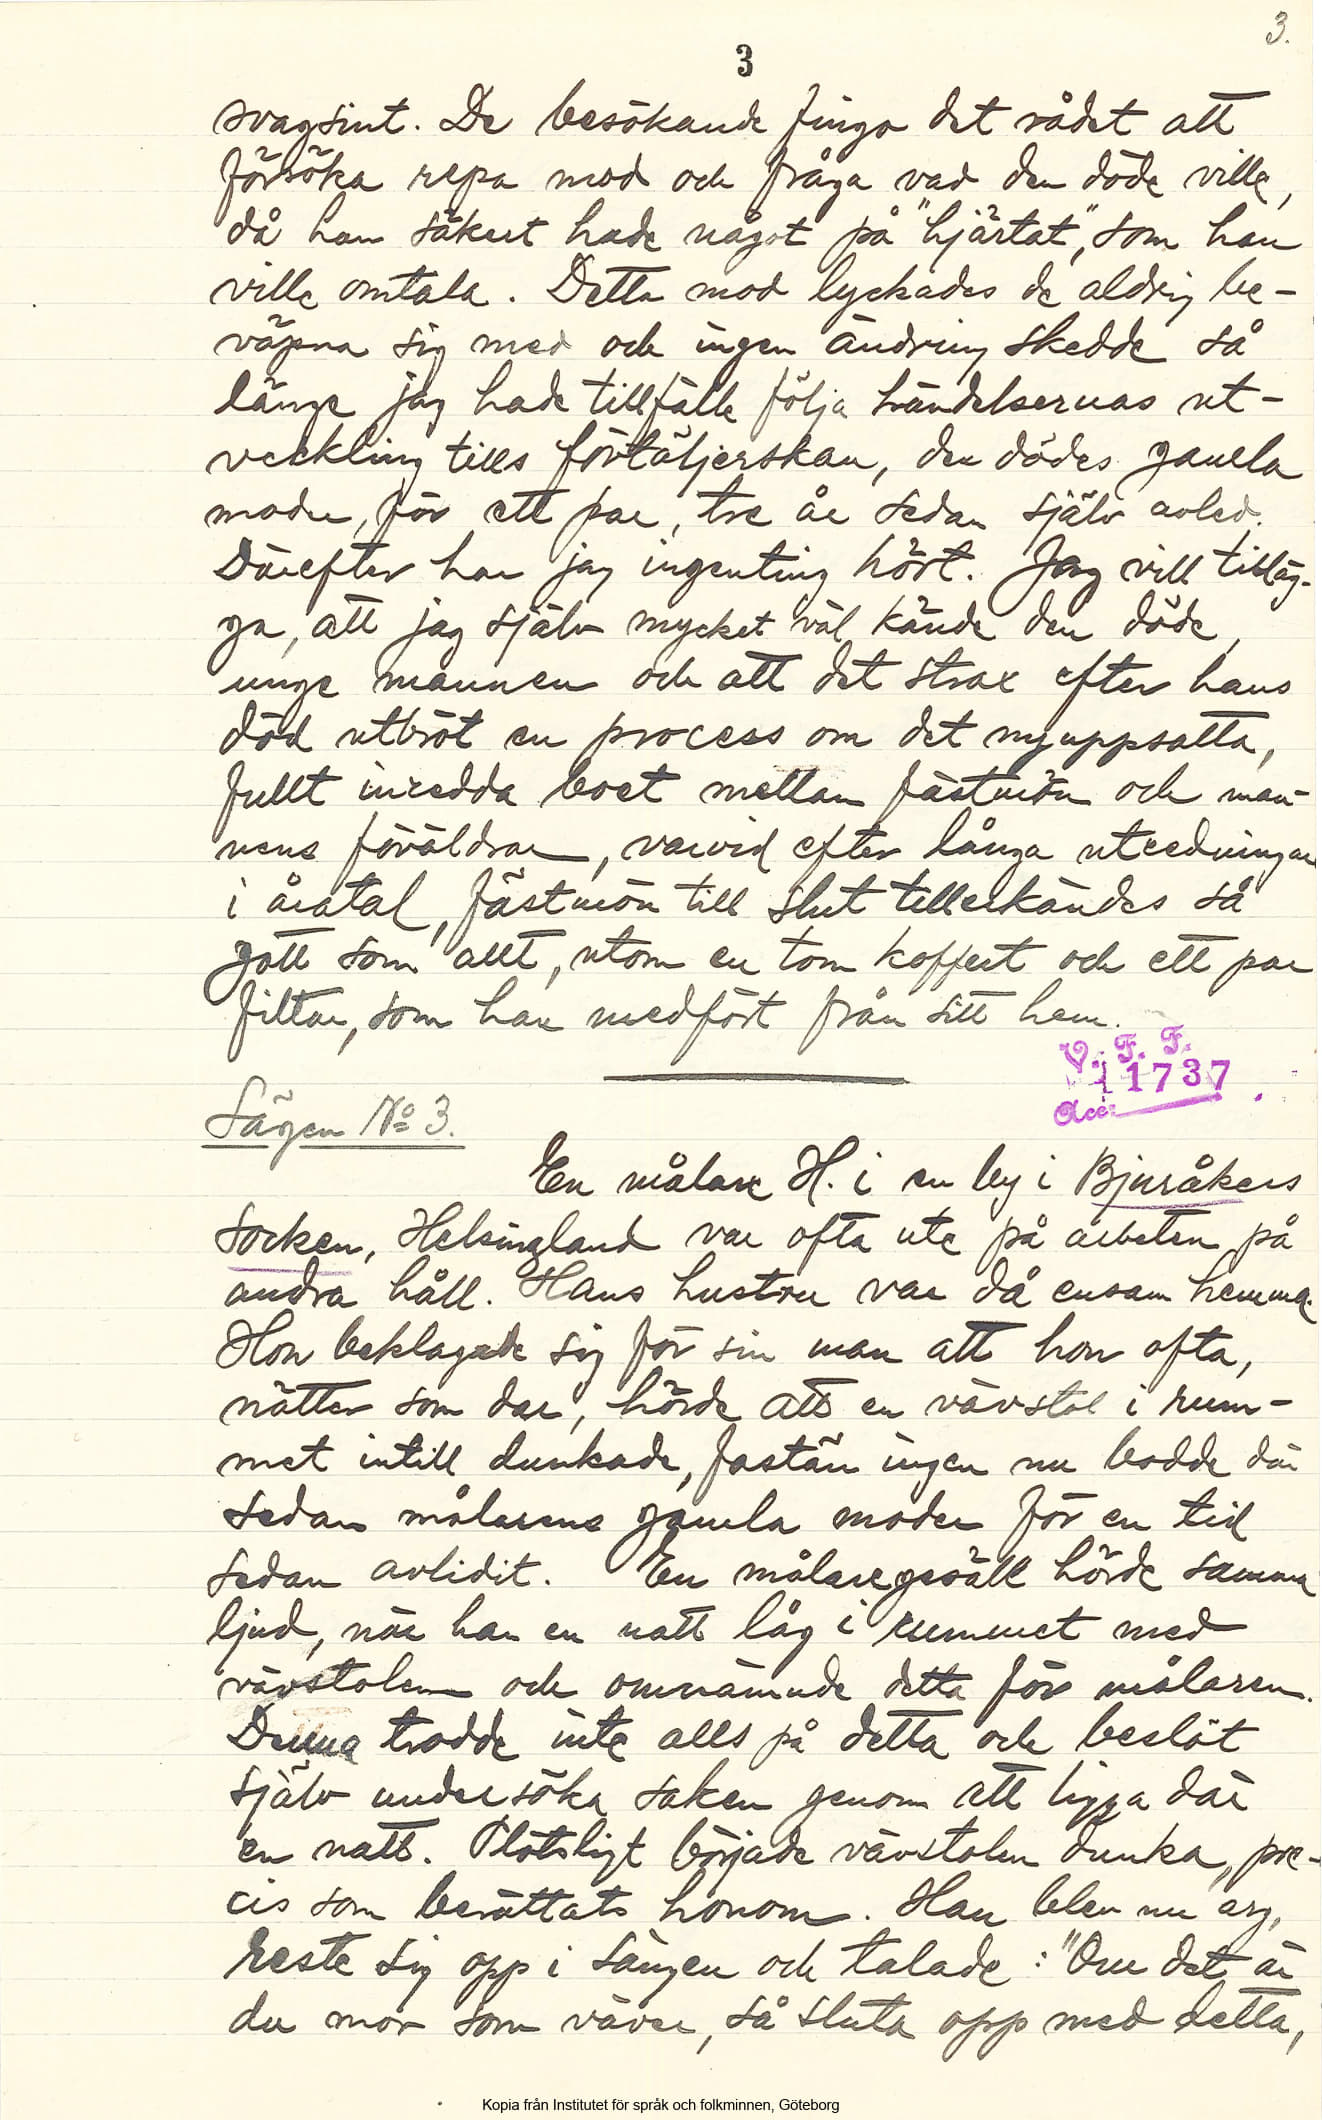 3.
3
svagsint. De besökande fingo det rådet att
försöka repa mod och fråga vad den döde ville,
då han säkert hade något på "hjärtat", som han
ville omtala. Detta mod lyckades de aldrig be-
väpna sig med och ingen ändring skedde så
länge jag hade tillfälle följa händelsernas ut-
veckling tills förtäljerskan, den dödes gamla
moder, för ett par, tre år sedan själv avled.
Därefter har jag ingenting hört. Jag vill tilläg-
ga, att jag själv mycket väl kände den döde,
unge mannen och att det strax efter hans
död utbröt en process om det nyuppsatta,
fullt inredda boet mellan fästmön och man-
nens föräldrar, varvid efter långa utredningar
i åratal, fästmön till slut tillerkändes så
gott som allt, utom en tom koffert och ett par
filtar, som han medfört från sitt hem.
V. F. F.
1737
Acc:
Sägen No 3.
En målare H. i en by i Bjuråkers
socken, Helsingland var ofta ute på arbeten på
andra håll. Hans hustru var då ensam hemma.
Hon beklagade sig för sin man att hon ofta,
nätter som dar, hörde att en vävstol i rum-
met intill dunkade, fastän ingen nu bodde där
sedan målarens gamla moder för en tid
sedan avlidit. En målaregesäll hörde samma
ljud, när han en natt låg i rummet med
vävstolen och omnämnde detta för målaren.
Denna trodde inte alls på detta och beslöt
själv undersöka saken genom att ligga där
en natt. Plötsligt började vävstolen dunka, pre-
cis som berättats honom. Han blev nu arg,
reste sig opp i sängen och talade: "Om det är
du mor som väver, så sluta opp med detta,
Kopia från Institutet för språk och folkminnen, Göteborg